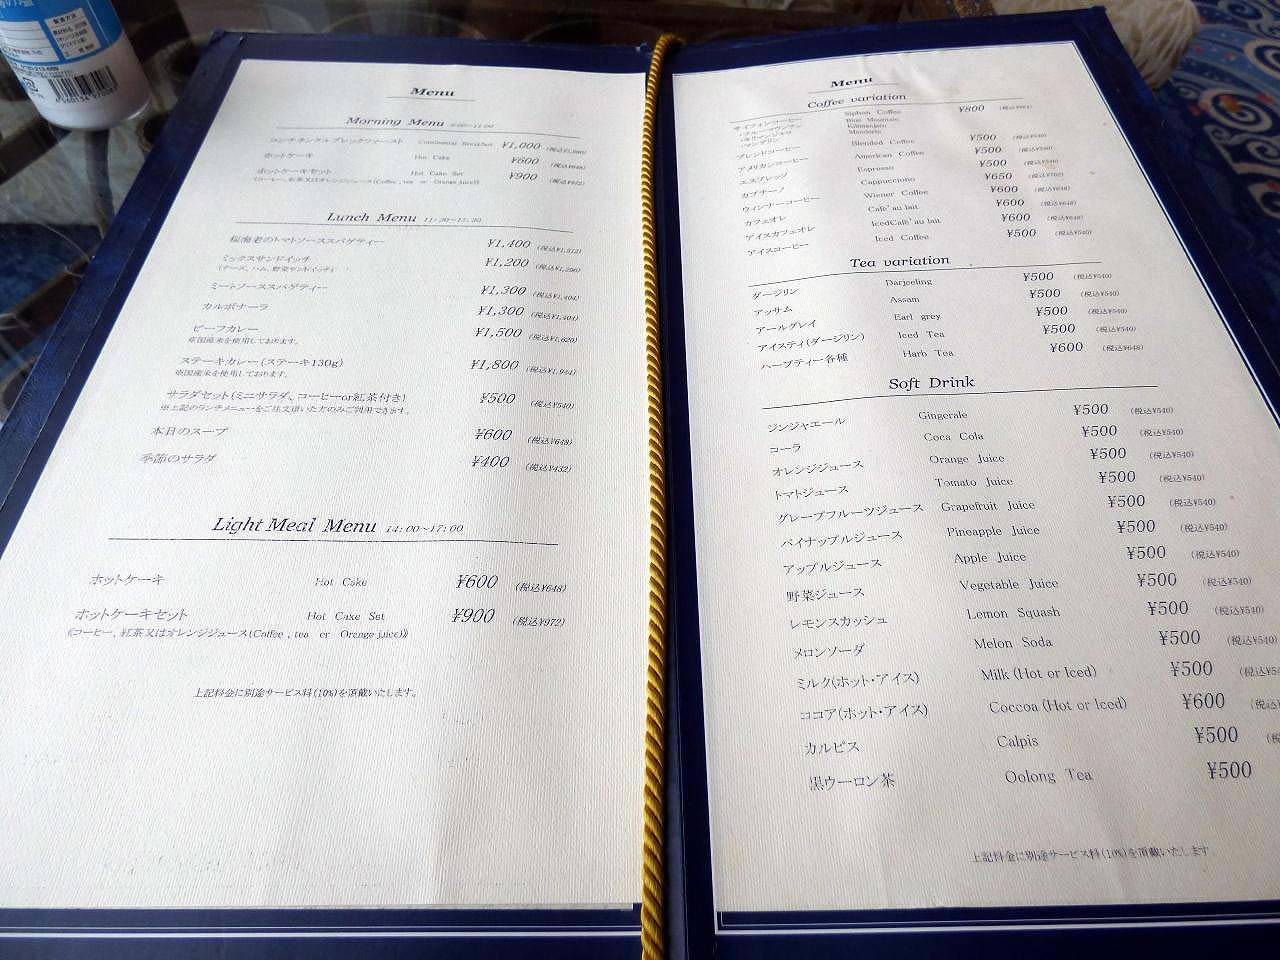 Menu
Morning Menu 8:00~11:00
コンチネンタルブレックファースト Continental Breakfast ¥1,000 (税込¥1,080)
ホットケーキ Hot Cake ¥600 (税込¥648)
ホットケーキセット Hot Cake Set ¥900 (税込¥972)
(コーヒー、紅茶又はオレンジジュース(Coffee , tea or Orange juice))
Lunch Menu 11:30~15:30
桜海老のトマトソーススパゲティー ¥1,400 (税込¥1,512)
ミックスサンドイッチ ¥1,200 (税込¥1,296)
(チーズ、ハム、野菜サンドイッチ)
ミートソーススパゲティー ¥1,300 (税込¥1,404)
カルボナーラ ¥1,300 (税込¥1,404)
ビーフカレー ¥1,500 (税込¥1,620)
※国産米を使用しております。
ステーキカレー(ステーキ130g) ¥1,800 (税込¥1,944)
※国産米を使用しております。
サラダセット(ミニサラダ、コーヒーor紅茶付き) ¥500 (税込¥540)
※上記のランチメニューをご注文頂いた方のみご利用できます。
本日のスープ ¥600 (税込¥648)
季節のサラダ ¥400 (税込¥432)
Light Meal Menu 14:00~17:00
ホットケーキ Hot Cake ¥600 (税込¥648)
ホットケーキセット Hot Cake Set ¥900 (税込¥972)
《コーヒー、紅茶又はオレンジジュース(Coffee , tea or Orange juice)》
上記料金に別途サービス料(10%)を頂戴いたします。
Menu
Coffee variation
サイフォンコーヒー Siphon Coffee ¥800 (税込¥864)
・ブルーマウンテン Blue Mountain
・キリマンジャロ Kilimanjaro
・マンデリン Mandarin
ブレンドコーヒー Blended Coffee ¥500 (税込¥540)
アメリカンコーヒー American Coffee ¥500 (税込¥540)
エスプレッソ Espresso ¥500 (税込¥540)
カプチーノ Cappuccino ¥650 (税込¥702)
ウィンナーコーヒー Wiener Coffee ¥600 (税込¥648)
カフェオレ Café' au lait ¥600 (税込¥648)
アイスカフェオレ IcedCafé'au lait ¥600 (税込¥648)
アイスコーヒー Iced Coffee ¥500 (税込¥540)
Tea variation
ダージリン Darjeeling ¥500 (税込¥540)
アッサム Assam ¥500 (税込¥540)
アールグレイ Earl grey ¥500 (税込¥540)
アイスティ(ダージリン) Iced Tea ¥500 (税込¥540)
ハーブティー各種 Harb Tea ¥600 (税込¥648)
Soft Drink
ジンジャエール Gingerale ¥500 (税込¥540)
コーラ Coca Cola ¥500 (税込¥540)
オレンジジュース Orange Juice ¥500 (税込¥540)
トマトジュース Tomato Juice ¥500 (税込¥540)
グレープフルーツジュース Grapefruit Juice ¥500 (税込¥540)
パイナップルジュース Pineapple Juice ¥500 (税込¥540)
アップルジュース Apple Juice ¥500 (税込¥540)
野菜ジュース Vegetable Juice ¥500 (税込¥540)
レモンスカッシュ Lemon Squash ¥500 (税込¥540)
メロンソーダ Melon Soda ¥500 (税込¥540)
ミルク(ホット・アイス) Milk (Hot or Iced) ¥500 (税込¥5
ココア(ホット・アイス) Coccoa (Hot or Iced) ¥600 (税込
カルピス Calpis ¥500 (税
黒ウーロン茶 Oolong Tea ¥500
上記料金に別途サービス料(10%)を頂戴いたします